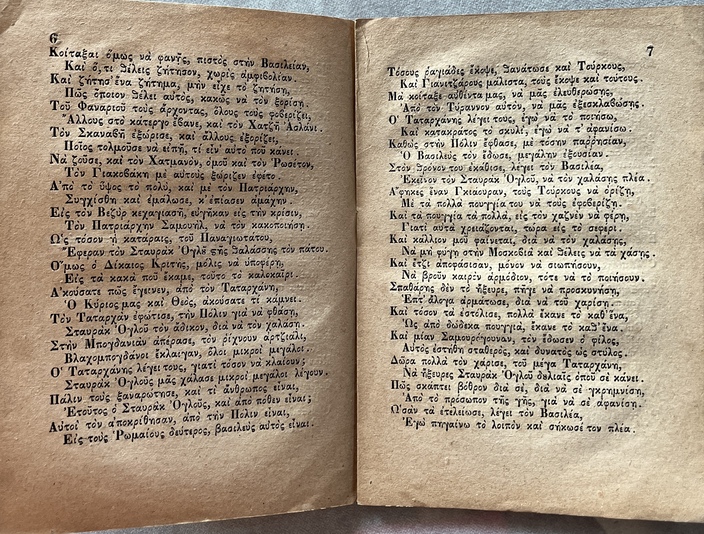 6
Κοίταξαι ὅμως νὰ φανῇς, πιστὸς στὴν Βασιλείαν,
Καὶ ὅ,τι θέλεις ζήτησον, χωρὶς ἀμφιβολίαν.
Καὶ ζήτησ' ἕνα ζήτημα, μὴν εἶχε τὸ ζητήση,
Πῶς ὅποιον θέλει αὐτὸς, κακῶς νὰ τὸν ξορίση.
Τοῦ Φαναριοῦ τοὺς ἄρχοντας, ὅλους τοὺς φοβερίζει,
Ἄλλους στὸ κάτεργο ἔβανε, καὶ τὸν Χατζῆ Ἀσλάνι.
Τὸν Σκαναβῆ ἐξώρισε, καὶ ἄλλους ἐξορίζει,
Ποῖος τολμοῦσε νὰ εἰπῇ, τί εἶν' αὐτὸ ποῦ κάνει.
Νὰ ζοῦσε, καὶ τὸν Χατμανὸν, ὁμοῦ καὶ τὸν Ῥωσέτον,
Τὸν Γιακοβάκη μὲ αὐτοὺς ἐξώριζεν ἐφέτο.
Ἀπὸ τὸ ὕψος τὸ πολὺ, καὶ μὲ τὸν Πατριάρχην,
Συγχίσθη καὶ ἐμάλωσε, κ' ἐπίασεν ἀμάχην.
Εἰς τὸν Βεζὺρ κεχαγιασῆ, εὐγῆκαν εἰς τὴν κρίσιν,
Τὸν Πατριάρχην Σαμουὴλ, νὰ τὸν κακοποιήση.
Ὡς τόσον ἡ κατάραις, τοῦ Παναγιωτάτου,
Ἔφεραν τὸν Σταυρὰκ Ὀγλȣ τῆς θαλάσσης τὸν πάτου.
Ὅμως ὁ Δίκαιος Κριτὴς, μόλις νὰ ὑποφέρη,
Εἰς τὰ κακὰ ποῦ ἔκαμε, τοῦτο τὸ καλοκαίρι.
Ἀκούσατε πῶς ἔγεινεν, ἀπὸ τὸν Ταταρχάνην,
Ὁ Κύριος μας καὶ Θεὸς, ἀκούσατε τί κάμνει.
Τὸν Ταταρχὰν ἐφώτισε, τὴν Πόλιν γιὰ νὰ φθάση,
Σταυρὰκ Ὀγλοῦ τὸν ἄδικον, διὰ νὰ τὸν χαλάση.
Στὴν Μπογδανίαν ἀπέρασε, τὸν ῥίχνουν ἀρτζιάλι,
Βλαχομπογδάνοι ἔκλαιγαν, ὅλοι μικροὶ μεγάλοι.
Ὁ Ταταρχάνης λέγει τους, γιατὶ τόσον νὰ κλαίουν;
Σταυρὰκ Ὀγλοῦς μᾶς χάλασε μικροὶ μεγάλοι λέγουν.
Πάλιν τοὺς ξαναρώτησε, καὶ τί ἄνθρωπος εἶναι,
Ἐτοῦτος ὁ Σταυρὰκ Ὀγλοῦς, καὶ ἀπὸ ποθὲν εἶναι;
Αὐτοὶ τὸν ἀποκρίθησαν, ἀπὸ τὴν Πόλιν εἶναι,
Εἰς τοὺς Ῥωμαίους δεύτερος, βασιλεὺς αὐτὸς εἶναι.
7
Τόσους ῥαγιάδες ἔκοψε, θανάτωσε καὶ Τούρκους,
Καὶ Γιανιτζάρους μάλιστα, τοὺς ἔκοψε καὶ τούτους.
Μὰ κοίταξε αὐθέντα μας, νὰ μᾶς ἐλευθερώσῃς,
Ἀπὸ τὸν Τύραννον αὐτὸν, νὰ μᾶς ἐξεσκλαβώσῃς.
Ὁ Ταταρχάνης λέγει τους, ἐγὼ νὰ τὸ ποιήσω,
Καὶ κατακράτος τὸ σκυλὶ, ἐγὼ νὰ τ' ἀφανίσω.
Καθὼς στὴν Πόλιν ἔφθασε, μὲ τόσην παρρησίαν,
Ὁ Βασιλεὺς τὸν ἔδωσε, μεγάλην ἐξουσίαν.
Στὸν θρόνον του ἐκάθισε, λέγει τὸν Βασιλέα,
Ἐκεῖνον τὸν Σταυρὰκ Ὀγλοῦ, νὰ τὸν χαλάσῃς πλέα.
Ἄφηκες ἕναν Γκιάουραν, τοὺς Τούρκους νὰ ὁρίζη,
Μὲ τὰ πολλὰ πουγγία του νὰ τοὺς ἐφοβερίζη.
Καὶ τὰ πουγγία τὰ πολλὰ, εἰς τὸν χαζνὲν νὰ φέρη,
Γιατὶ αὐτὰ χρειάζονται, τώρα εἰς τὸ σεφέρι.
Καὶ κάλλιον μοῦ φαίνεται, διὰ νὰ τὸν χαλάσῃς,
Νὰ μὴ φύγη στὴν Μοσκοβιὰ καὶ θέλεις νὰ τὰ χάσῃς.
Καὶ ἔτζι ἀποφάσισαν, μόνον νὰ σιωπήσουν,
Νὰ βροῦν καιρὸν ἁρμόδιον, τότε νὰ τὸ ποιήσουν.
Σπαθάρης δὲν τὸ ἤξευρε, πῆγε νὰ προσκυνήση,
Ἐπτ' ἄλογα ἁρμάτωσε, διὰ νὰ τοῦ χαρίση.
Καὶ τόσον τὰ ἐστόλισε, πολλὰ ἔκανε τὸ καθ' ἕνα,
Ὡς ἀπὸ δώδεκα πουγγιὰ, ἔκανε τὸ καθ' ἕνα.
Καὶ μίαν Σαμουρόγουναν, τὸν ἔδωσεν ὁ φίλος,
Αὐτὸς ἐστήθη σταθερὸς, καὶ δυνατὸς ὡς στύλος.
Δῶρα πολλὰ τὸν χάρισε, τοῦ μέγα Ταταρχάνη,
Νὰ ἤξευρες Σταυρὰκ Ὀγλοῦ δȣλιαῖς ὁποῦ σὲ κάνει.
Πῶς σκάπτει βόθρον διὰ σὲ, διὰ νὰ σὲ γκρημνίση,
Ἀπὸ τὸ πρόσωπον τῆς γῆς, γιὰ νὰ σὲ ἀφανίση.
Ὡσὰν τὰ ἐτελείωσε, λέγει τὸν Βασιλέα,
Ἐγὼ πηγαίνω τὸ λοιπὸν καὶ σήκωσέ τον πλέα.